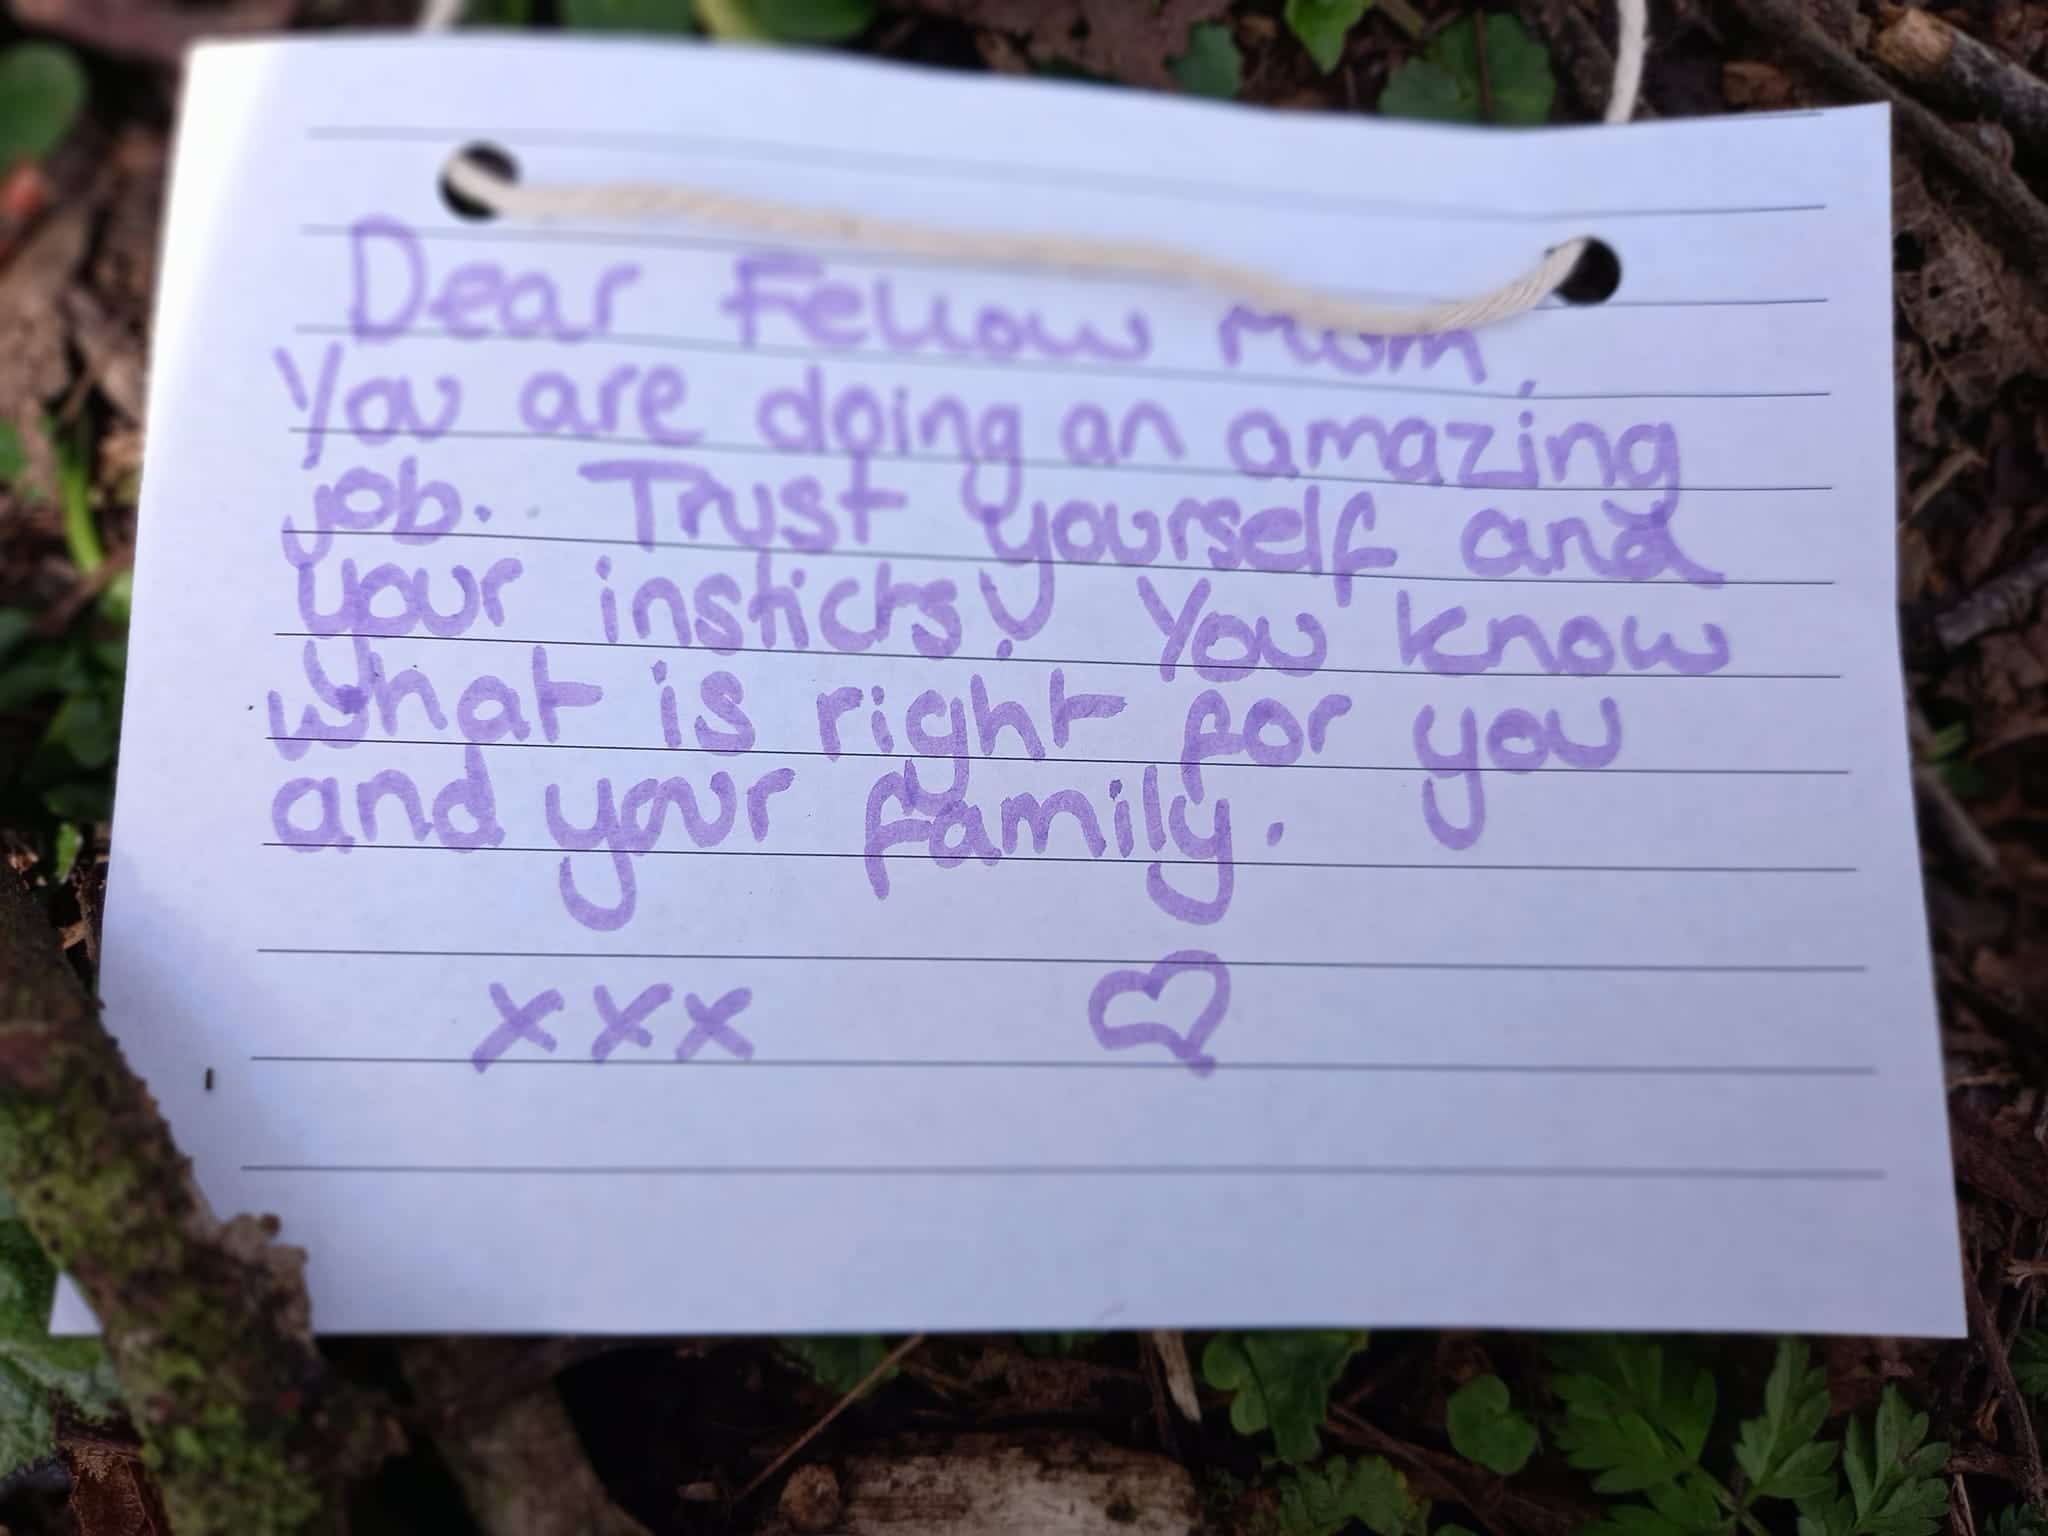 Dear Fellow Mom,
You are doing an amazing
job. Trust yourself and
your insticts! You know
what is right for you
and your family.
xxx ♡